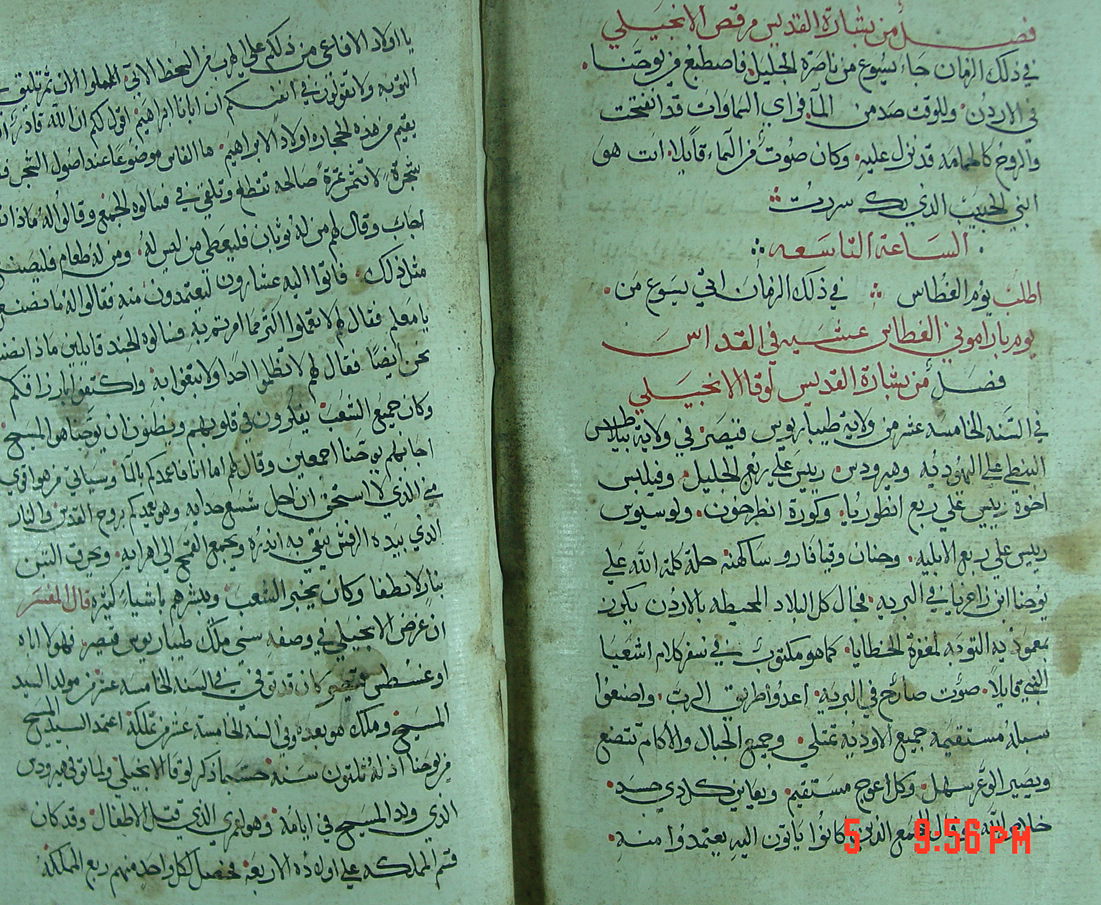 فصل من بشارة القديس مرقص الانجيلي
في ذلك الزمان جاء يسوع من ناصرة الجليل فاصطبغ من يوحنا
في الاردن وللوقت صعد من الماء فراي السماوات قد انفتحت
والروح كالحمامه قد نزل عليه وكان صوت من السماء قايلا انت هو
ابني الحبيب الذي بك سررت
الساعة التاسعه
اطلب يوم الغطاس في ذلك الزمان اتي يسوع من
يوم باراموني الغطاس عشيه في القداس
فصل من بشارة القديس لوقا الانجيلي
في السنه الخامسه عشر من ولاية طيباريوس قيصر في ولاية بيلاطس
النبطي علي اليهوديه وهيرودس رييس علي ربع الجليل وفيلبس
اخوه رييس علي ربع انطوريا وكورة انطرخون ولوسيوس
رييس علي ربع الابليه وحنان وقيافا روسا كهنه حلة كلمة الله علي
يوحنا ابن زاخريا في البريه فجال كل البلاد المحيطه بالاردن يكرز
بمعموديه التوبه لمغفرة الخطايا كما هو مكتوب في سفر كلام اشعيا
النبي قايلا صوت صارخ في البريه اعدوا طريق الرب واصنعوا
سبله مستقيمه جميع الاوديه تمتلي وجميع الجبال والاكام تتضع
ويصير الوعر سهل وكل اعوج مستقيم ويعاين كل ذي جسد
خلاص الله وقال للجمع الذي كانوا ياتون اليه يعتمدوا منه
5 9:56 PM
يا اولاد الافاعي من دلكم علي الهرب من السخط الاتي اعملوا الان ثمر تليق
التوبه ولا تقولون في انفسكم ان ابانا ابراهيم اقول لكم ان الله قادر ان
يقيم من هذه الحجاره اولاد لابراهيم ها الفاس موضوعا عند اصول الشجر
شجرة لا تثمر ثمرة صالحه تقطع وتلقي في فسالوه الجمع وقالوا له ماذا
اجاب وقال لهم من له ثوبان فليعطي من ليس له ومن له طعام فليصنع
مثل ذلك فاتوا اليه عشارون ليعتمدون منه فقالوا له ما نصنع
يا معلم فقال لهم لا تفعلوا اكثر مما امرتم به فسالوه الجند قايلين ماذا نصنع
نحن ايضا فقال لهم لا تظلموا احدا ولا تبغوا به واكتفوا بارزاقكم
وكان جميع الشعب يفكرون في قلوبهم ويظنون ان يوحنا هو المسيح
اجابهم يوحنا اجمعين وقال لهم اما انا فاعمدكم بالماء وسياتي من هو اقوي
مني الذي لا استحق ان احل شسع حدايه وهو يعمدكم بروح القدس والنار
الذي بيده الرفش ينقي به اندره ويجمع القمح الي اهرايه ويحرق التبن
بنار لا تطفا وكان يخبر الشعب ويبشرهم باشياء كثيره قال المفسر
ان غرض الانجيلي في وصفه سني ملك طيباريوس قيصر فهو اباه
اوغسطس قيصر كان قد توفي في السنه الخامسه عشر من مولد السيد
المسيح وملك هو بعده وفي السنه الخامسه عشر من تملكه اعتمد السيد المسيح
من يوحنا اذ له ثلثون سنه حسبما ذكر لوقا الانجيلي ولما توفي هيرودس
الذي ولد المسيح في ايامه وهو الذي قتل الاطفال وقد كان
قسم المملكه علي اولاده الاربعة فحصل لكل واحد منهم ربع المملكة